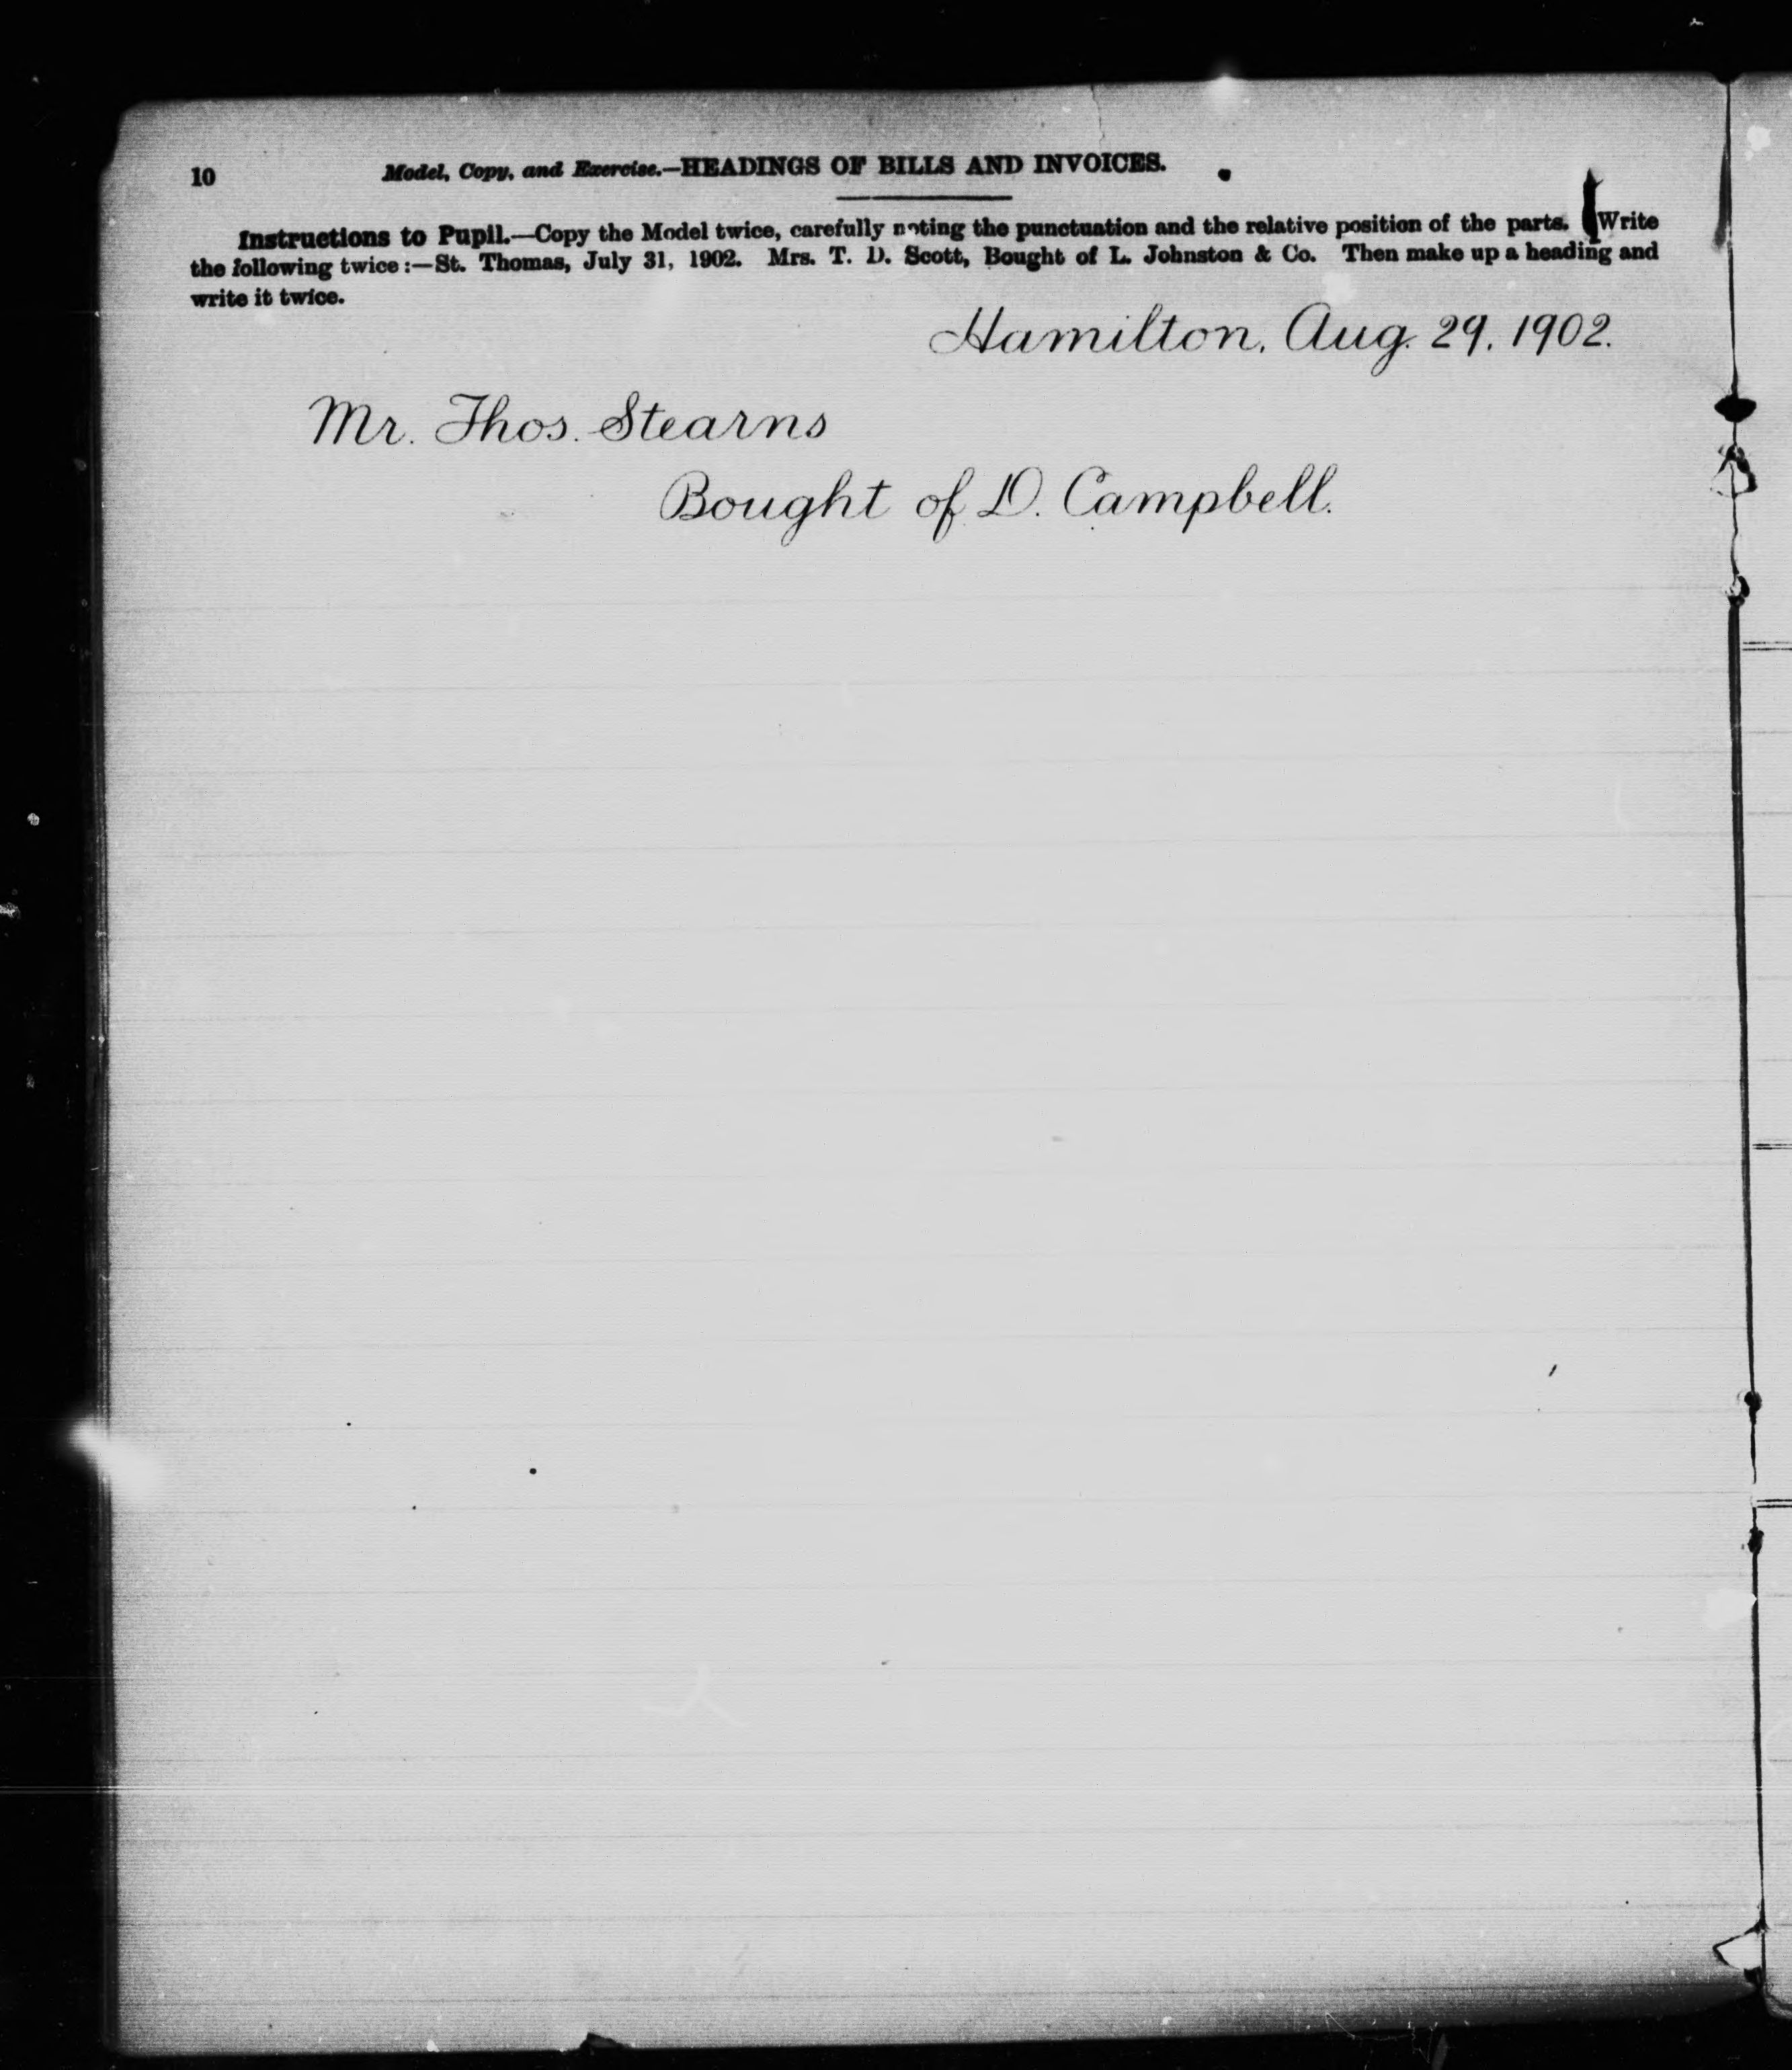 10
Model, Copy, and Exercise.—HEADINGS OF BILLS AND INVOICES.
Instructions to Pupil.—Copy the Model twice, carefully noting the punctuation and the relative position of the parts. Write
the following twice:—St. Thomas, July 31, 1902. Mrs. T. D. Scott, Bought of L. Johnston & Co. Then make up a heading and
write it twice.
Hamilton, Aug. 29, 1902.
Mr. Thos. Stearns
Bought of D. Campbell.